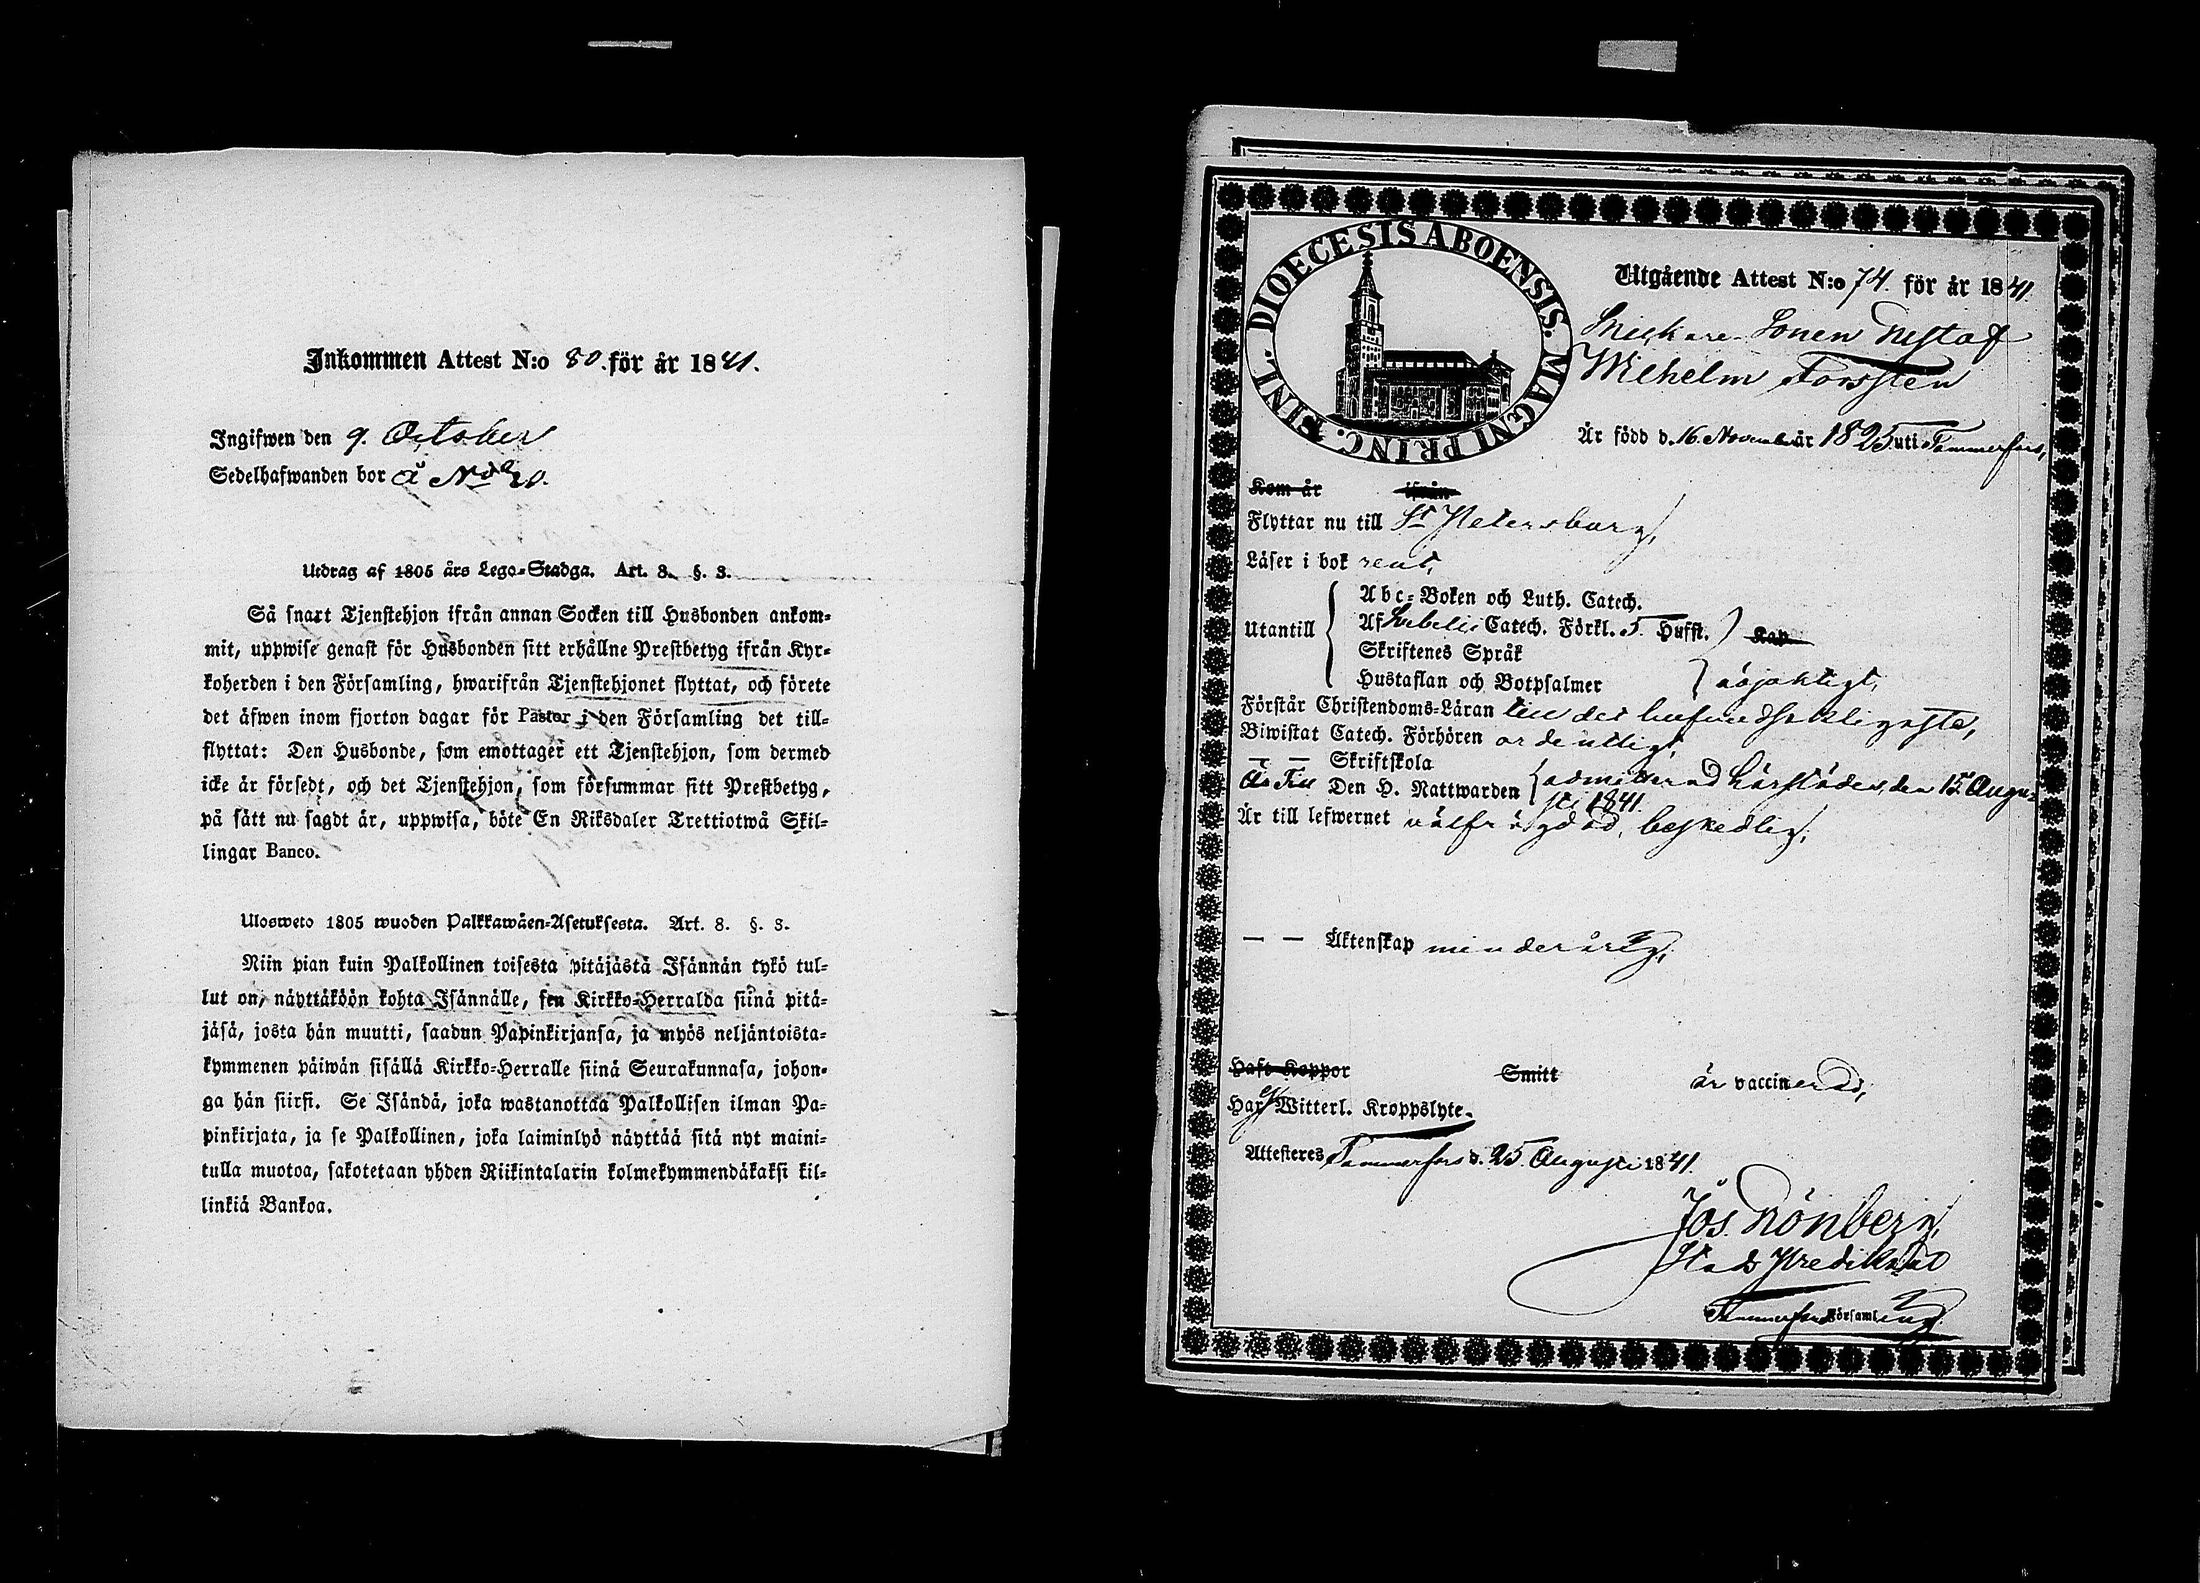 Inkommen Attest N:o 80. för år 1841.
Ingifwen den 9. October
Sedelhafwanden bor å No 20.
Utdrag af 1805 års Lego-Stadga. Art. 8. §. 3.
Så snart Tjenstehjon ifrån annan Socken till Husbonden ankom-
mit, uppwise genast för Husbonden sitt erhållne Prestbetyg ifrån Kyr-
koherden i den Församling, hwarifrån Tjenstehjonet flyttat, och förete
det äfwen inom fjorton dagar för Pastor i den Församling det till-
flyttat: Den Husbonde, som emottager ett Tjenstehjon, som dermed
icke är försedt, och det Tjenstehjon, som försummar sitt Prestbetyg,
på sätt nu sagdt är, uppwisa, böte En Riksdaler Trettiotwå Skil-
lingar Banco.
Ulosweto 1805 wuoden Palkkawäen-Asetuksesta. Art. 8. §. 3.
Niin pian kuin Palkollinen toisesta pitäjästä Isännän tykö tul-
lut on, näyttäköön kohta Isännälle, sen Kirkko-Herralda siinä pitä-
jäsä, josta hän muutti, saadun Papinkirjansa, ja myös neljäntoista-
kymmenen päiwän sisällä Kirkko-Herralle siinä Seurakunnasa, johon-
ga hän siirsi. Se Isändä, joka wastanottaa Palkollisen ilman Pa-
pinkirjata, ja se Palkollinen, joka laiminlyö näyttää sitä nyt maini-
tulla muotoa, sakotetaan yhden Riikintalarin kolmekymmendäkaksi kil-
linkiä Bankoa.
FINL. DIOECESIS ABOENSIS. MAGNI PRINC.
Utgående Attest N:o 74 för år 1841.
Snickare Sonen Gustaf
Wilhelm Forssten
Är född d. 16. November år 1825 uti Tammerfors,
Kom år ifrån
Flyttar nu till St Petersburg,
Läser i bok rent,
Abc-Boken och Luth. Catech.
Utantill Af Svebelii Catech. Förkl. 5. Hufst. Kap
Skriftenes Språk
Hustaflan och Botpsalmer nöjaktigt,
Förstår Christendoms-Läran till det hufvudsakligaste,
Biwistat Catech. Förhören ordentligt,
— — Skriftskola
Är Till Den H. Nattwarden admitterad härstädes, den 15 Augu-
sti 1841.
Är till lefwernet välfrägdad, beskedlig,
— — Äktenskap minderårig,
Haft Koppor Smitt är vaccinerad,
Har ej Witterl. Kroppslyte.
Attesteres Tammerfors d. 25. Augusti 1841.
Jos. Grönberg,
Stads Predikant
Tammerfors Församling.